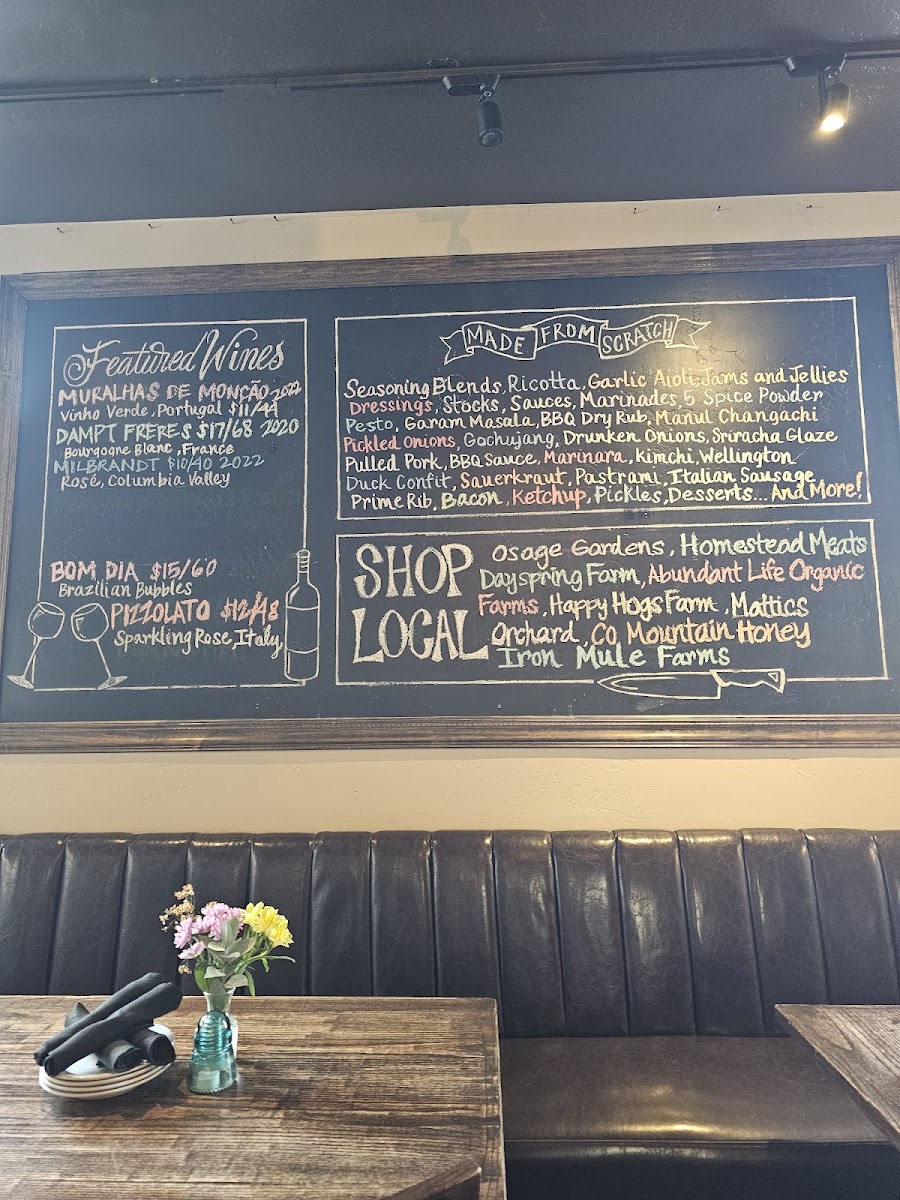 Featured Wines
MURALHAS DE MONÇÃO 2022
Vinho Verde, Portugal $11/44
DAMPT FRERES $17/68 2020
Bourgogne Blanc, France
MILBRANDT $10/40 2022
Rosé, Columbia Valley
BOM DIA $15/60
Brazilian Bubbles
PIZZOLATO $12/48
Sparkling Rose, Italy
MADE FROM SCRATCH
Seasoning Blends, Ricotta, Garlic Aioli, Jams and Jellies
Dressings, Stocks, Sauces, Marinades 5 Spice Powder
Pesto, Garam Masala, BBQ Dry Rub, Manul Changachi
Pickled Onions, Gochujang, Drunken Onions, Sriracha Glaze
Pulled Pork, BBQ Sauce, Marinara, Kimchi, Wellington
Duck Confit, Sauerkraut, Pastrami, Italian Sausage
Prime Rib, Bacon, Ketchup, Pickles, Desserts... And More!
SHOP LOCAL
Osage Gardens, Homestead Meats
Dayspring Farm, Abundant Life Organic
Farms, Happy Hogs Farm, Mattics
Orchard, CO Mountain Honey
Iron Mule Farms